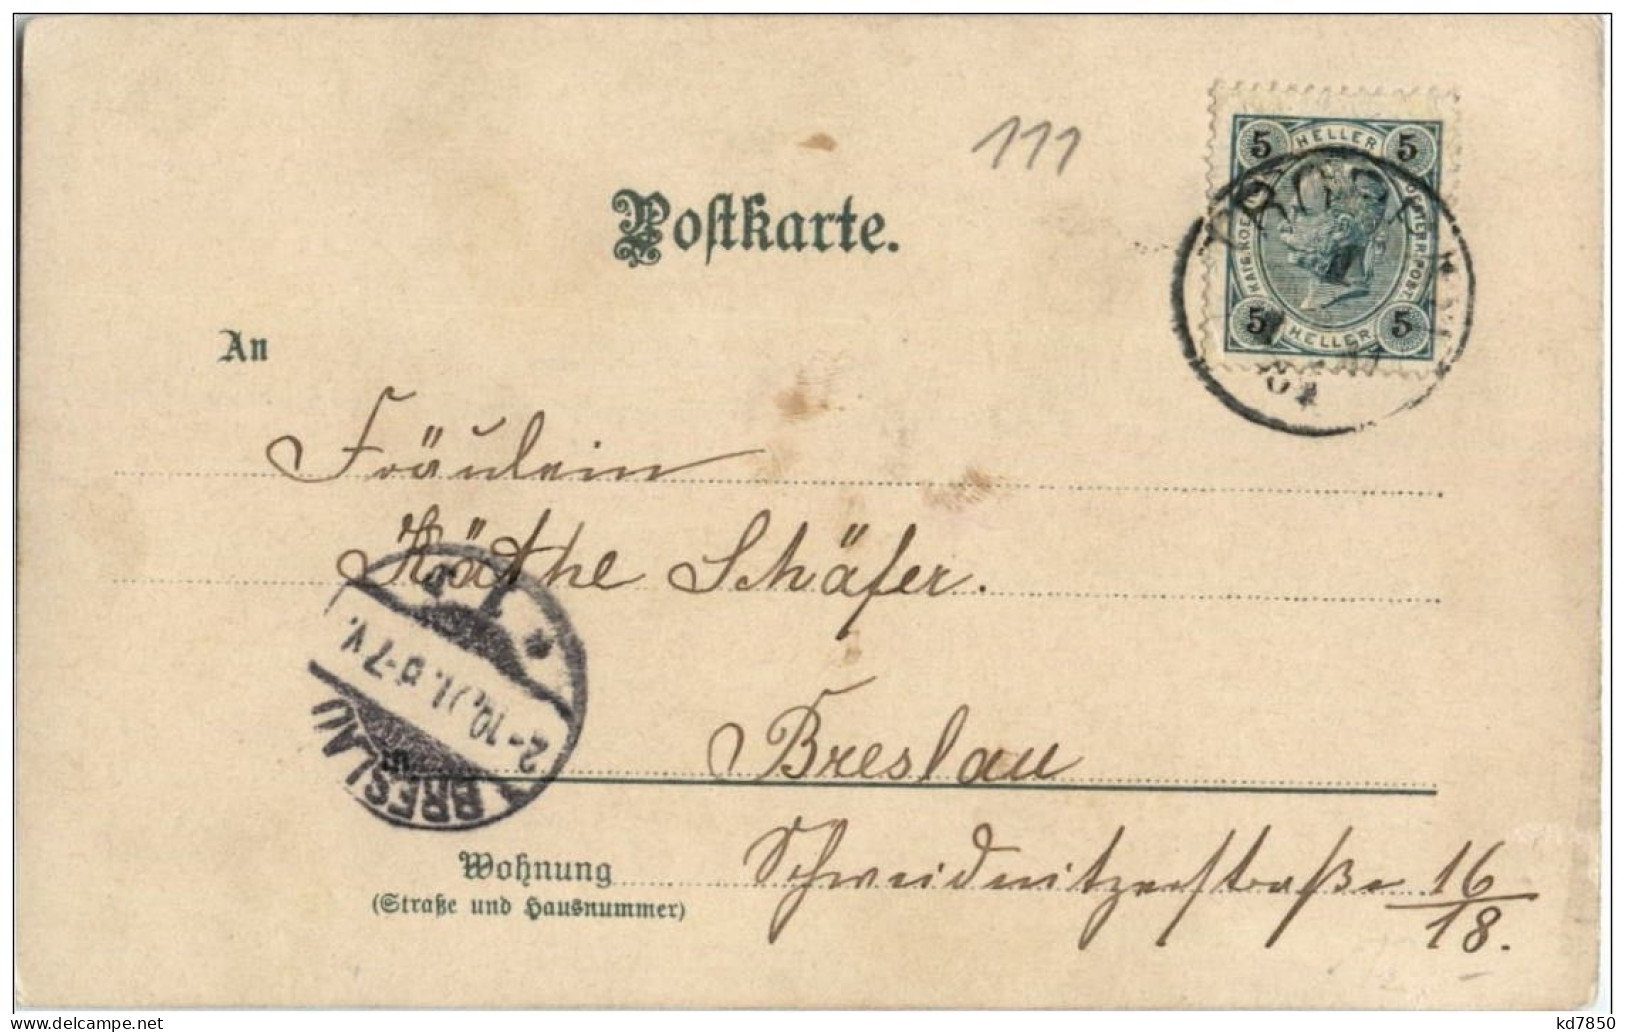 111
5 HELLER 5
KAIS. KOE. OESTERR. POST
5 HELLER 5
01
Postkarte.
An
Fräulein
Käthe Schäfer.
Breslau
BRESLAU
2-10.01. 6-7 V.
Wohnung
Schweidnitzerstraße 16/18.
(Straße und Hausnummer)
www.delcampe.net
kd7850